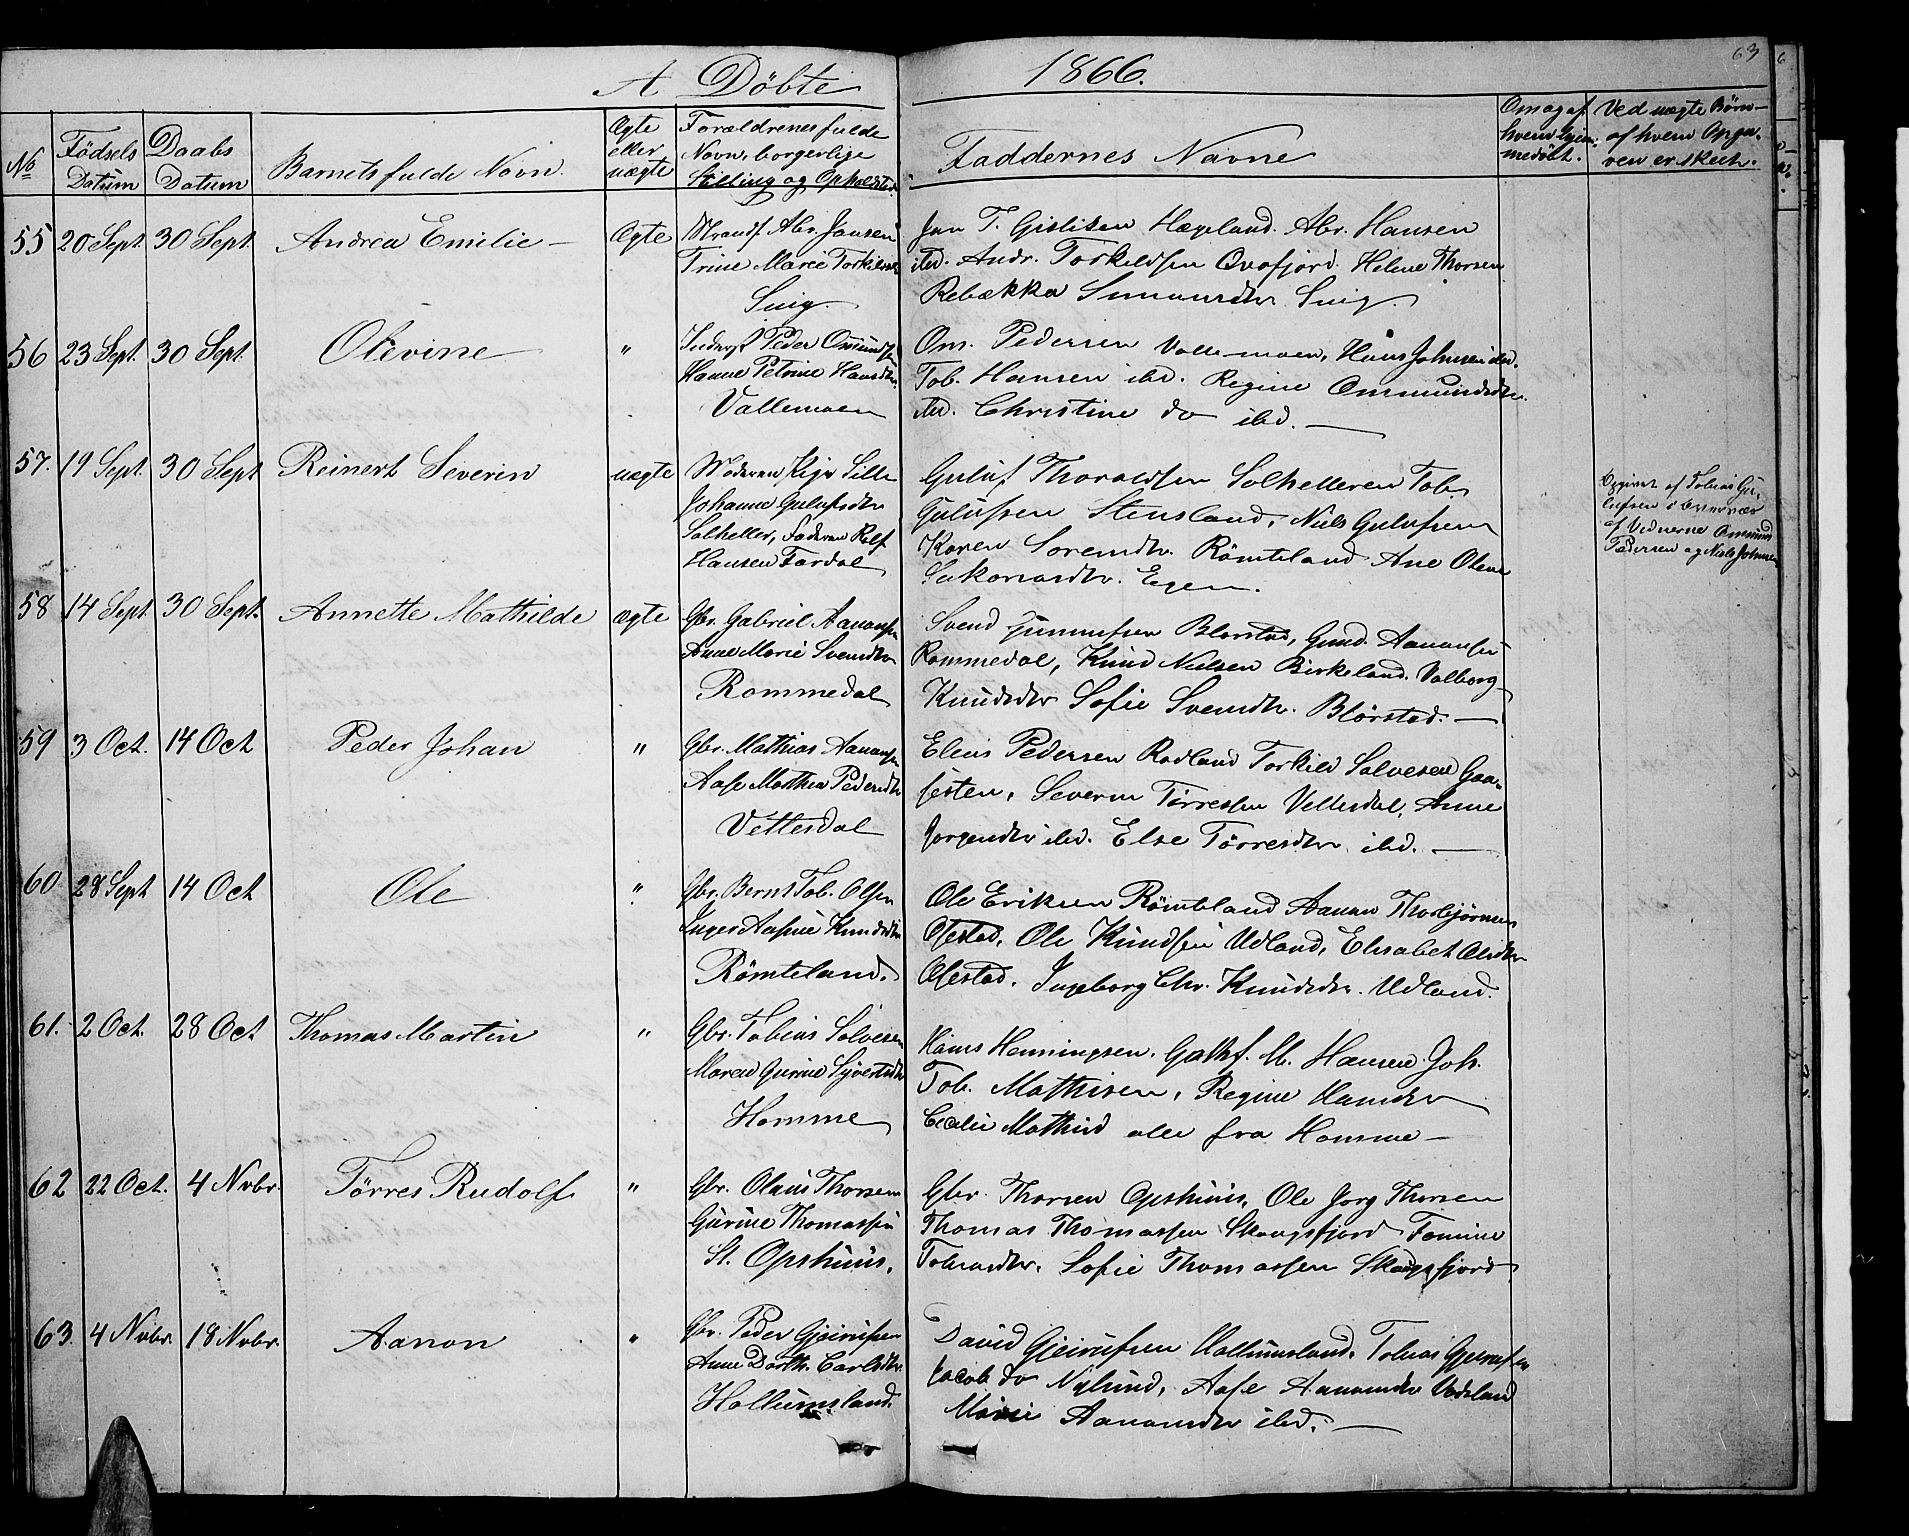 A Döbte 1866.
63
No
Födsels Datum
Daabs Datum
Barnets fulde Navn.
Ægte eller uægte
Forældrenes fulde
Navn, borgerlige
Stilling og Opholdsted
Faddernes Navne
Om og af
hvem hjem-
medöbt.
Ved uægte Börn
af hvem Opga-
ven er skeet.
55 20 Sept. 30 Sept. Andrea Emilie Ægte
Abr. Jansen
Trine Marie Torkilds
Snig.
Jan T. Gislisen Hægeland. Abr. Hansen
ibd. Andr. Torkildsen Ovafjord. Helene Thorsen
Rebækka Simonsdtr Snig
56 23 Sept. 30 Sept. Olevine "
Peder Omunds
Hanne Petrine Hansdtr.
Vallemoen
Om. Pedersen Vallemoen, Hans Johnsen ibd.
Tob. Hansen ibd. Regine Ommundsdtr
ibd. Christine do ibd.
57. 19 Sept. 30 Sept Reinert Severin uægte
Moderen Pige Sille
Johanne Gulufsdtr
Solheller, Faderen Rolf
Hansen Fardal
Guluf Thoraldsen Solhelleren Tob.
Gulufsen Stensland, Niels Gulufsen
Karen Sorensdtr. Römteland Ane Olene
Eegen.
Opgivet af Tobias Gu-
lufsen i Overvær
af Vidnerne Omund
Pedersen og Niels Johnsen
58 14 Sept. 30 Sept. Annette Mathilde ægte
Gbr. Gabriel Aanonsen
Anne Marie Svendsdtr
Rommedal
Svend Gunnufsen Blörstad, Gund. Aanonsen
Rommedal, Knud Nielsen Birkeland. Valborg
Knudsdtr Sofie Svendsdtr. Blörstad.
59 3 Oct. 14 Oct Peder Johan "
Gbr. Mathias Aanonsen
Aase Marthea Pedersdtr
Vettesdal
Elias Pedersen Rodland Torkild Salvesen Gaa-
sesten, Severin Törressen Vettesdal, Anne
Jorgensdtr ibd. Else Törresdtr ibd.
60 28 Sept 14 Oct Ole "
Gbr. Bernt Tob. Olsen
Inger Aasine Knudsdtr
Römteland.
Ole Eriksen Römteland Aanon Thorbjörnsen
Ofestad, Ole Knudsen Udland, Elisabet Olsdtr
Ofestad. Ingeborg Chr. Knudsdtr. Udland.
61. 2 Oct. 28 Oct Thomas Martin "
Gbr. Tobias Solvesen
Maren Gurine Syvertsdtr
Homme
Hans Henningsen. M. Hansen Joh.
Tob. Mathisen, Regine Hansdtr
Cecilie alle fra Homme
62 22 Oct. 4 Nvbr. Törres Rudolf "
Gbr. Olaus Thorsen
Gurine Thomassen
St. Opshuus.
Gbr. Thorsen Opshuus, Ole Jorg Thorsen
Thomas Thomassen Skougsfjord
Tobiasdtr. Sofie Thomassen Skougsfjord
63. 4 Nvbr. 18 Nvbr. Aanon "
Gbr. Peder Gjeirufsen
Anne Dorth. Carlsdtr.
Hallumsland.
David Gjeirufsen Hallumsland. Tobias Gjeirufsen
Jacob do Nylund, Aase Aanonsdtr
Marie Aanonsdtr ibd.